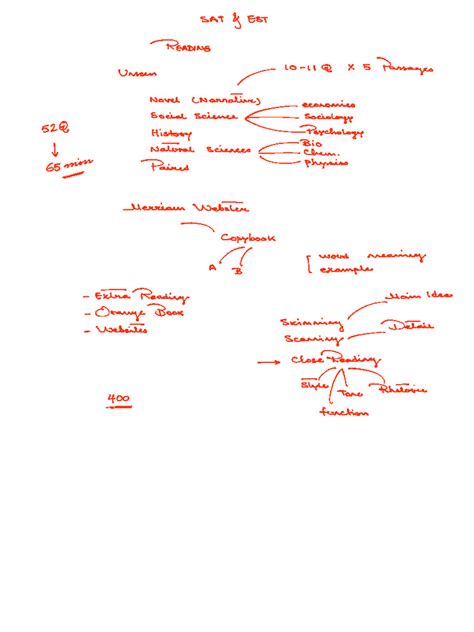 SAT & EST
READING
Unseen
10-11 Q x 5 Passages
Novel (Narrative)
Social Science
economics
Sociology
Psychology
History
Natural Sciences
Bio
Chem.
physics
Paired
52Q
65 min
Merriam Webster
Copybook
A B
word meaning
example
- Extra Reading
- Orange Book
- Websites
Skimming
Main Idea
Scanning
Detail
Close Reading
Style
Tone
Rhetoric
function
400